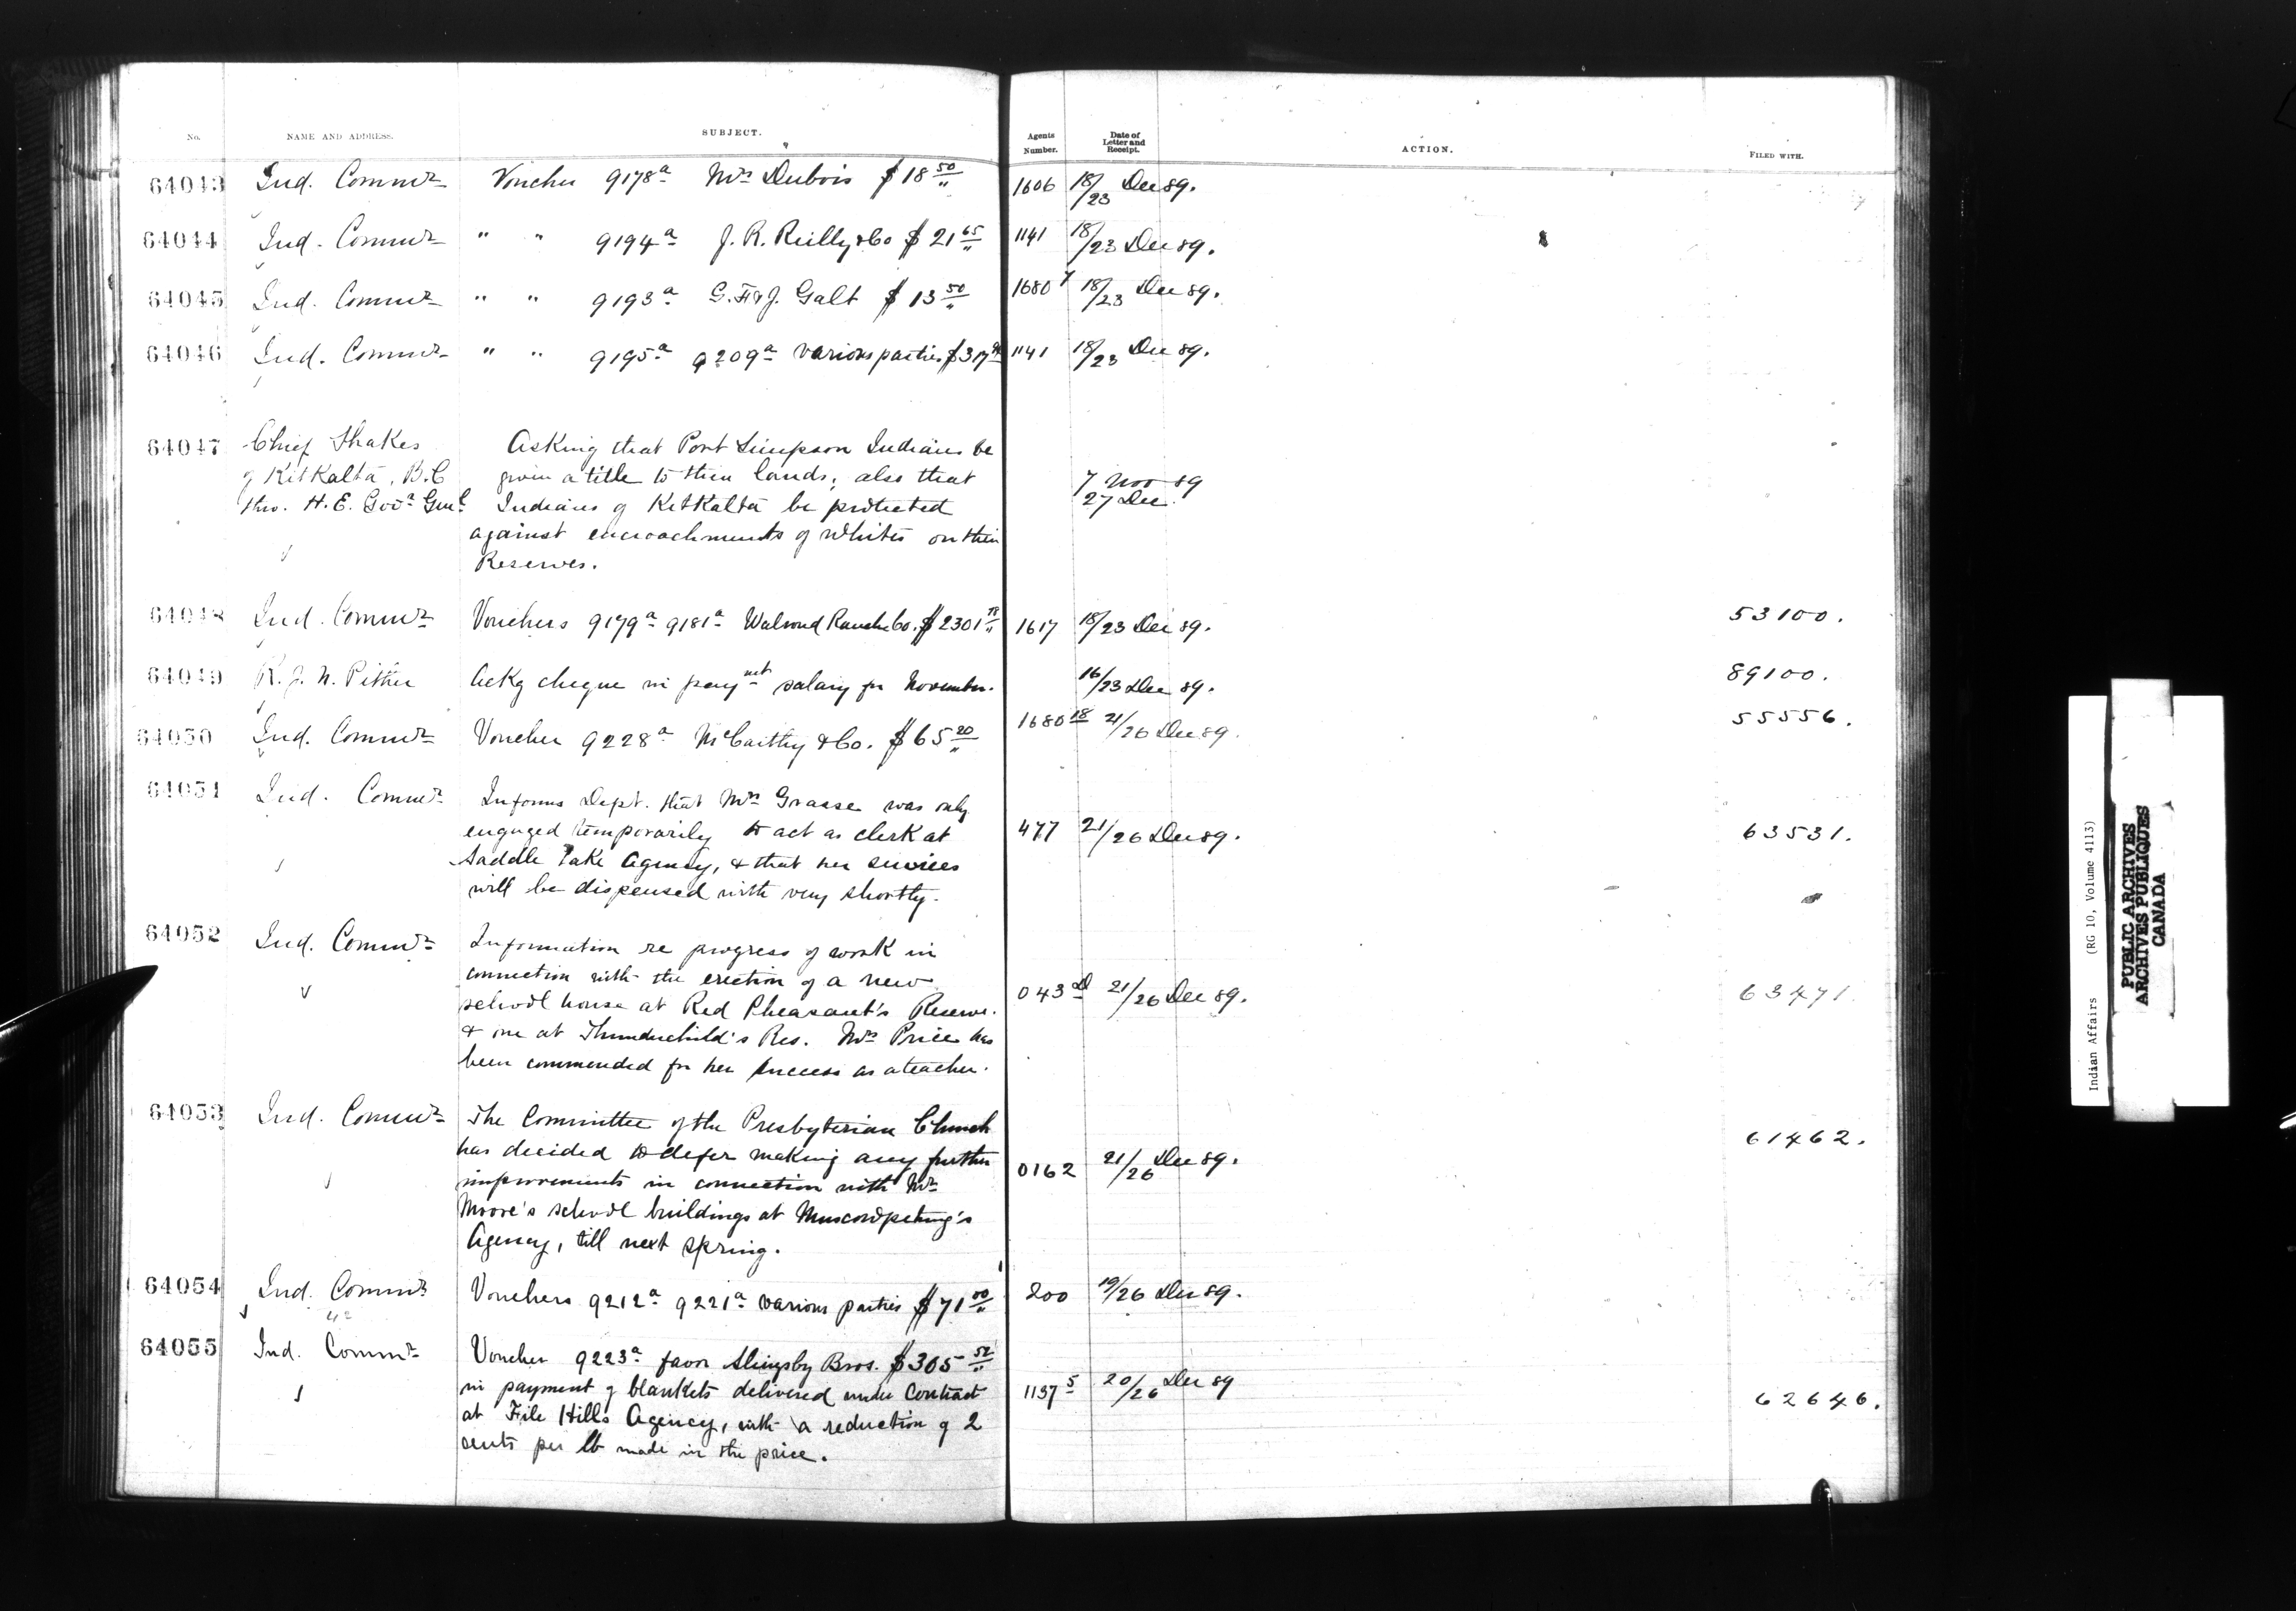 No. NAME AND ADDRESS. SUBJECT. Agents Number. Date of Letter and Receipt. ACTION. FILED WITH.
64043 Ind. Commr Voucher 9178a Mrs Dubois $18 50/" 1606 18/23 Dec 89.
64044 Ind. Commr " " 9194a J. R. Reilly & Co $21 65/" 1141 18/23 Dec 89.
64045 Ind. Commr " " 9193a G. F. & J. Galt $13 50/" 1680 7 18/23 Dec 89.
64046 Ind. Commr " " 9195a 9209a various parties $317 1141 18/23 Dec 89.
64047 Chief Shakes Asking that Port Simpson Indians be
of Kitkalta, B.C given a title to their lands; also that 7 Nov 89
thro. H. E. Govr Genl Indians of Kitkalta be protected 27 Dec.
against encroachments of whites on their
Reserves.
64048 Ind. Commr Vouchers 9179a 9181a Walrond Ranche Co. $2301 78/" 1617 18/23 Dec 89. 53100.
64049 R. J. N. Pither Ackg cheque in paymt salary for November. 16/23 Dec 89. 89100.
64050 Ind. Commr Voucher 9228a McCarthy & Co. $65 20/" 1680 18 21/26 Dec 89. 55556.
64051 Ind. Commr Informs Dept. that Mrs Graase was only
engaged temporarily to act as clerk at 477 21/26 Dec 89. 63531.
Saddle Lake Agency, & that her services
will be dispensed with very shortly.
64052 Ind. Commr Information re progress of work in
connection with the erection of a new
school house at Red Pheasant's Reserve. 043 D 21/26 Dec 89. 63471.
& one at Thunderchild's Res. Mrs Price has
been commended for her success as a teacher.
64053 Ind. Commr The Committee of the Presbyterian Church 61462.
has decided to defer making any further 0162 21/26 Dec 89.
improvements in connection with Mr
Moore's school buildings at Muscowpetung's
Agency, till next spring.
64054 Ind. Commr Vouchers 9212a 9221a various parties $71 00/" 200 19/26 Dec 89.
64055 Ind. Commr Voucher 9223a favor Slingsby Bros. $365 52/"
in payment of blankets delivered under Contract 1137 5 20/26 Dec 89 62646.
at File Hills Agency, with a reduction of 2
cents per lb made in the price.
Indian Affairs (RG 10, Volume 4113)
PUBLIC ARCHIVES
ARCHIVES PUBLIQUES
CANADA